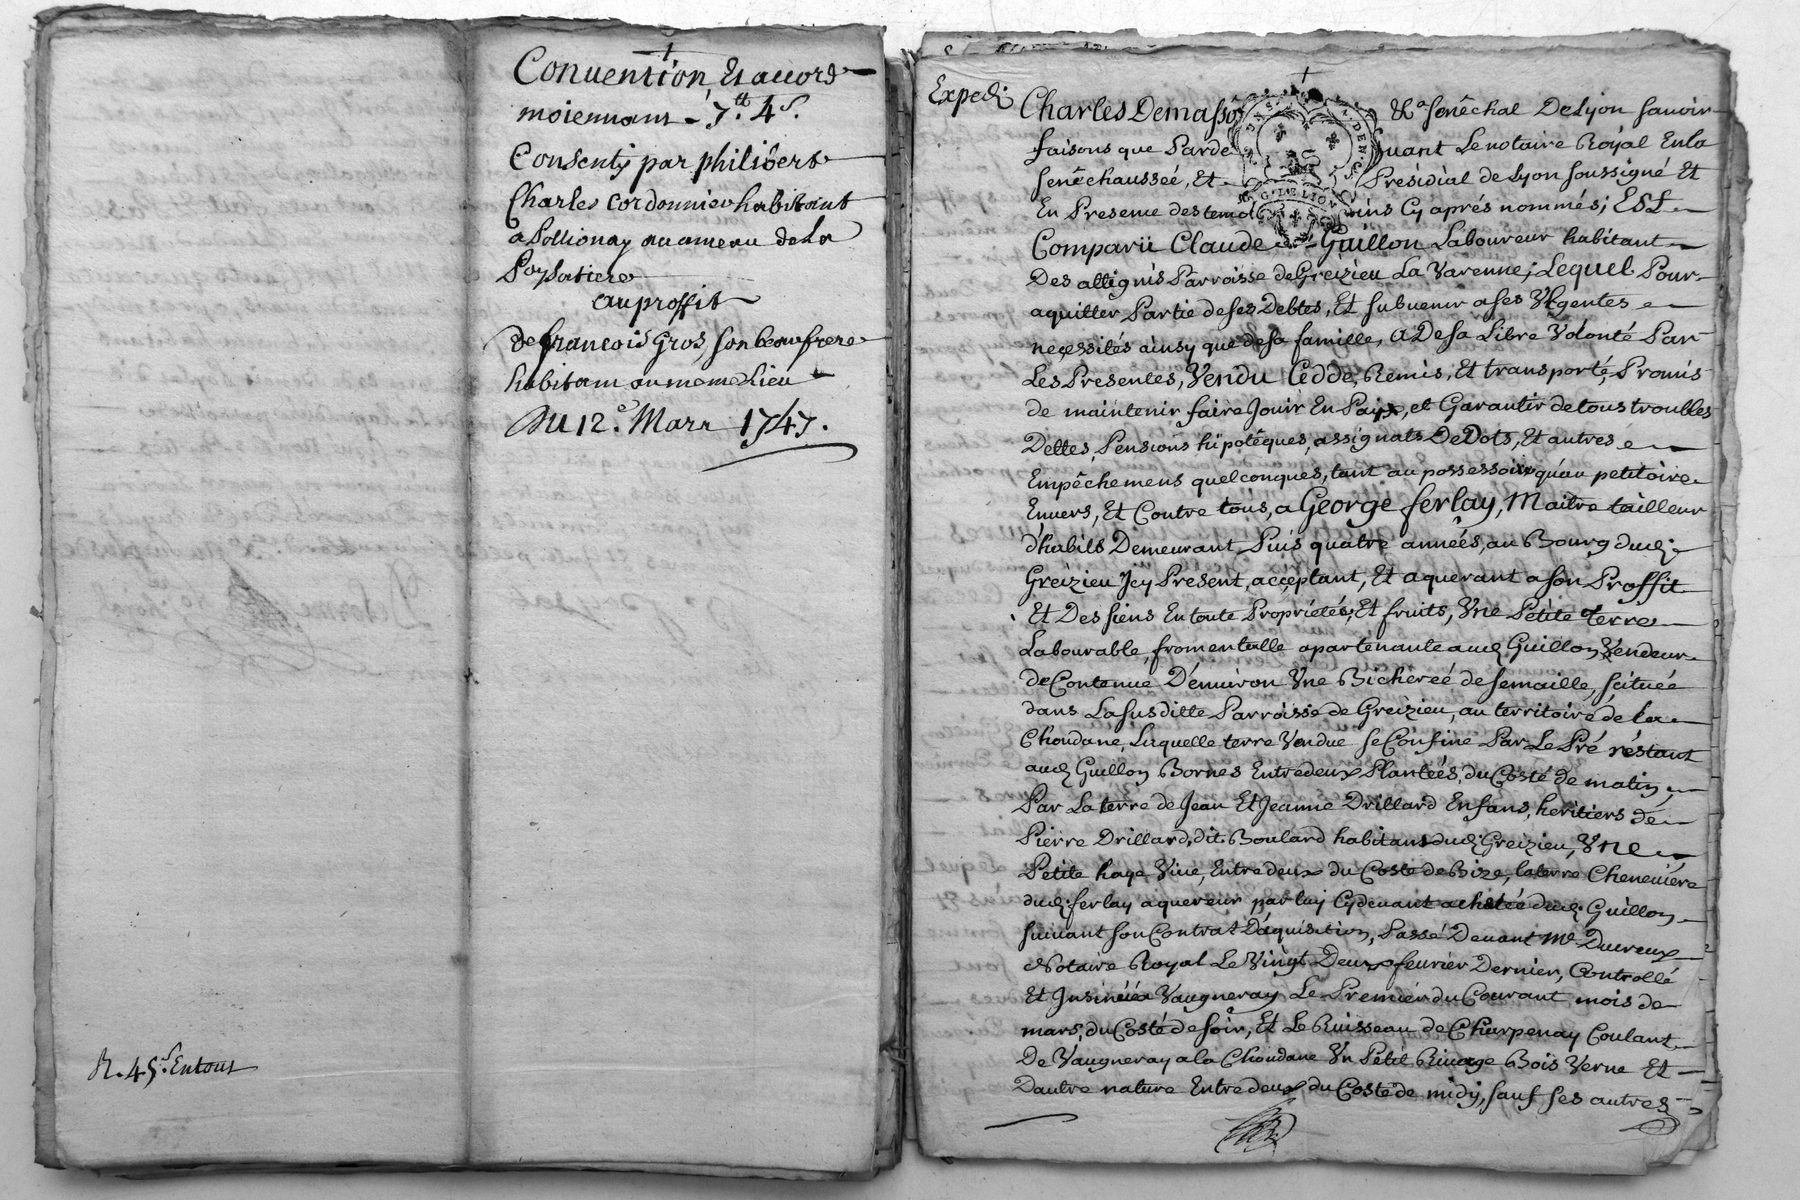 Convention, Et accord
moiennant 7.tt 4.s
Consenty par philibert
Charles cordonnier habitant
a Pollionay au ameau de La
Poyzatiere
au proffit
de francois Gros, son beaufrere
habitant au meme Lieu
Du 12.e Mars 1747.
R. 45.s Entout
Expedi
Charles Demasso &a senêchal De Lyon savoir
faisons que Parde vant Le notaire Royal En la
senêchausseé, Et Présidial de Lyon soussigné Et
En Presence des temoins Cy aprés nommés; ESt
Comparü Claude Guillon Laboureur habitant
Des attignis Parroisse de Greizieu La Varenne; Lequel Pour
aquitter Partie de ses Debtes, Et subvenir a ses Urgentes
necessités ainsy que de sa famille, a De sa Libre Volonté Par
Les Presentes, Vendu Cedde, Remis, Et transporté, Promis
de maintenir faire Jouir En Paix, et Garantir de tous troubles
Dettes, Pensions hipotêques, assignats De Dots, Et autres
Empêchemens quelconques, tant au possessoire qu'au petitoire
Envers, Et Contre tous, a George ferlay, Maitre tailleur
d'habits Demeurant Puis quatre années, au Bourg dud.
Greizieu Jcy Present, acceptant, Et aquerant a son Proffit
Et Des siens En toute Proprieté, Et fruits, Vne Petite terre
Labourable, fromentalle apartenante aud Guillon Vendeur
de Contenue D'environ Vne Bichereé de semaille, scituée
dans La susditte Parroisse de Greizieu, au territoire de la
Choudane, Laquelle terre Vendue se Confine Par Le Pré réstant
aud Guillon Bornes Entredeux Plantées, du Costé de matin,
Par La terre de Jean Et Jeanne Drillard Enfans, heritiers de
Pierre Drillard, dit Boulard habitans dud. Greizieu, Vne
Petite haye Vive, Entredeux du Costé de Bize, la terre Cheneviére
dud. ferlay aquereur par luy Cydevant achetée dud. Guillon
suivant son Contrat D'aquisition, Passé Devant Me Ducreux
Notaire Royal Le Vingt Deux fevrier Dernier, Controllé
Et Jnsinué a Vaugneray Le Premier du Courant mois de
mars, du Costé de soir, Et Le Ruisseau de Charpenay Coulant
De Vaugneray a la Choudane Vn Pétit Rivage Bois Verne Et
Dautre nature Entredeux du Costé de midy, sauf ses autres